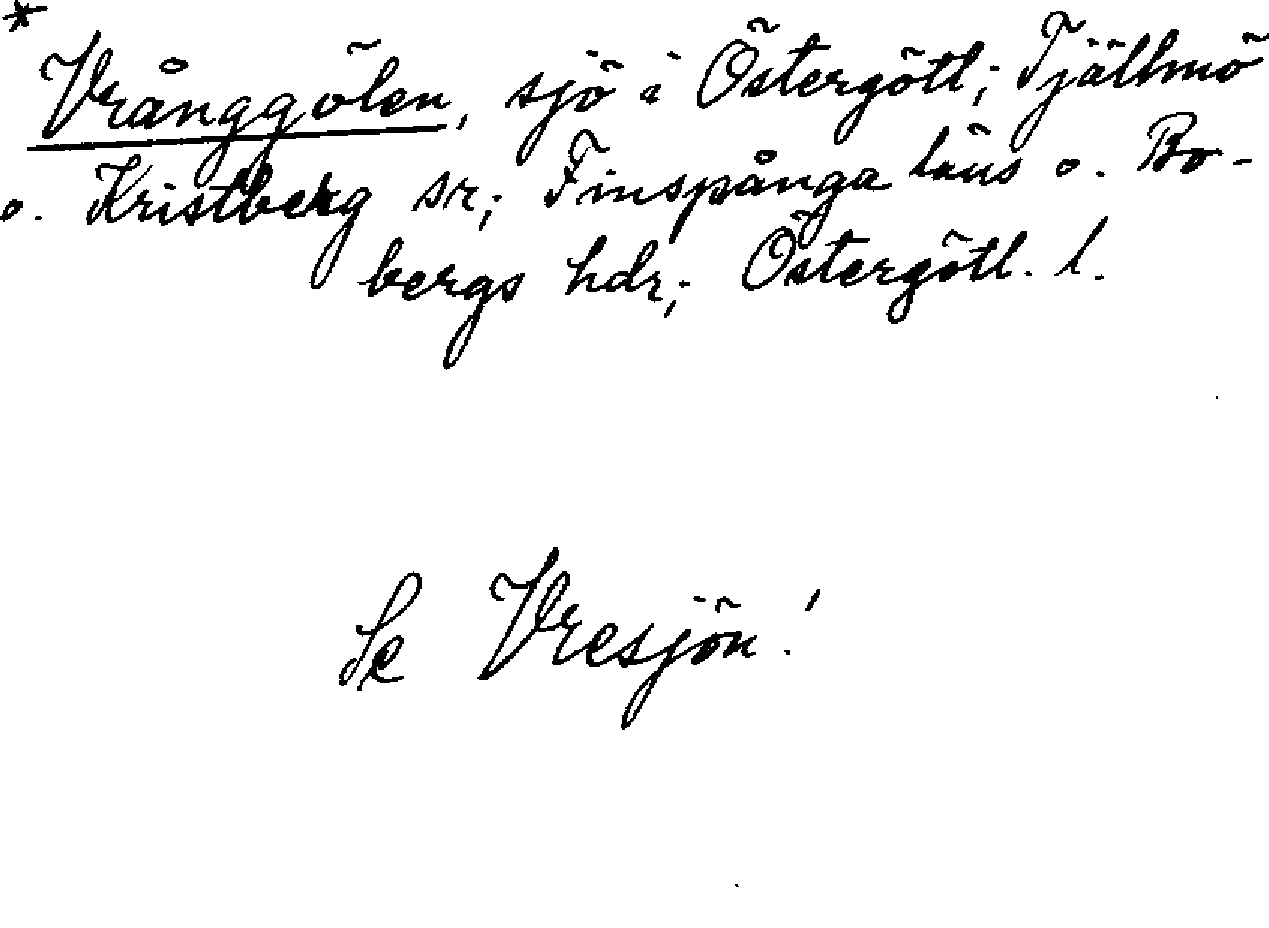 * Vrånggölen, sjö i Östergötl; Tjällmo
o. Kristberg sr; Finspånga läns o. Bo-
bergs hdr; Östergötl. l.
Se Vresjön!